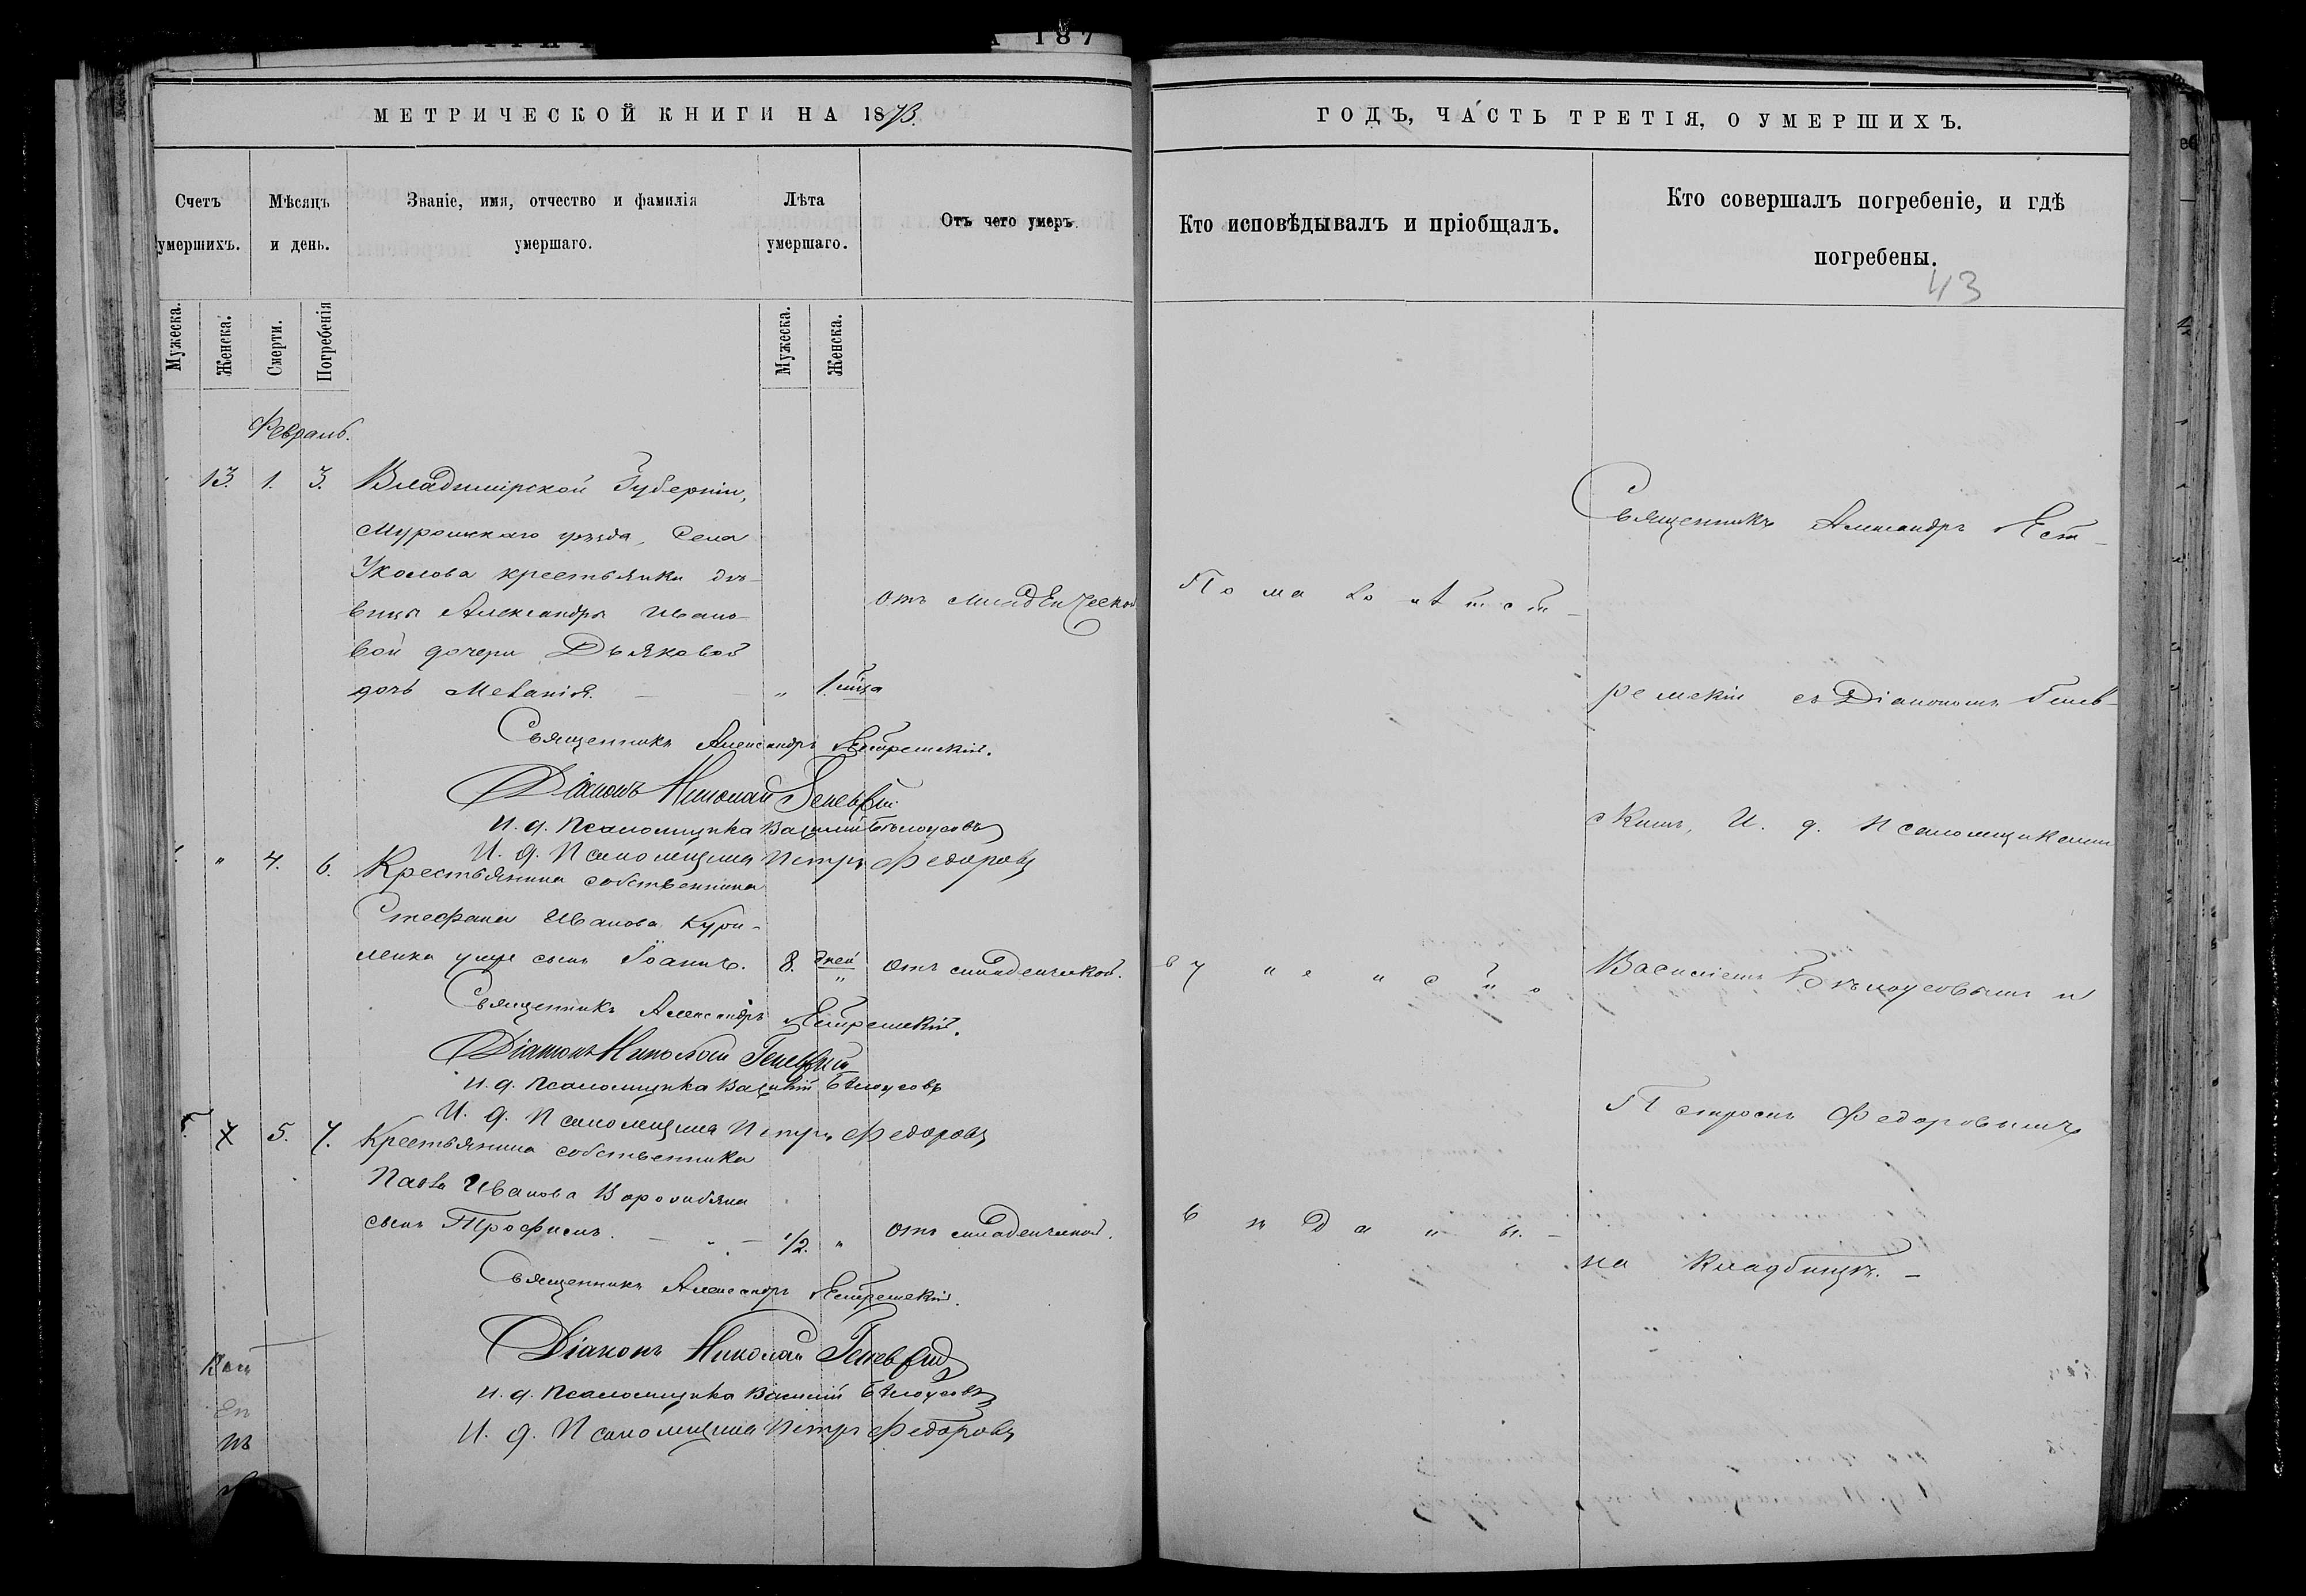 А 187
МЕТРИЧЕСКОЙ КНИГИ НА 1873.
Счетъ умершихъ.
Мѣсяцъ и день.
Званіе, имя, отчество и фамилія умершаго.
Лѣта умершаго.
Отъ чего умеръ
Мужеска.
Женска.
Смерти.
Погребенія
Мужеска.
Женска.
Февраль.
13. 1. 3. Владимірской Губерніи,
Муромскаго уѣзда, Села
крестьянки дѣ-
вицы Александры Ивано-
вой дочери Дьяковой
дочь Меланія. „ 1.
отъ младенческой
Священникъ Александръ Ястремскій.
Діаконъ Николай
И. д. Псаломщика Василій Бѣлоусовъ
И. д. Псаломщика Петръ Федоровъ
„ 4. 6. Крестьянина собственника
Стефана Иванова Кури-
ленка сынъ Іоаннъ. 8. дней „ отъ младенческой.
Священникъ Александръ Ястремскій.
Діаконъ Николай
И. д. Псаломщика Василій Бѣлоусовъ
И. д. Псаломщика Петръ Федоровъ
5. 7. Крестьянина собственника
Павла Иванова
сынъ Трофимъ. 1/2. „ отъ младенческой.
Священникъ Александръ Ястремскій.
Діаконъ Николай
И. д. Псаломщика Василій Бѣлоусовъ
И. д. Псаломщика Петръ Федоровъ
ГОДЪ, ЧАСТЬ ТРЕТІЯ, О УМЕРШИХЪ.
Кто исповѣдывалъ и пріобщалъ.
Кто совершалъ погребеніе, и гдѣ
погребены.
43
По малолѣтст-
ву не
Священникъ Александръ Яст-
ремскій съ Діакономъ
скимъ, И. д. Псаломщиками
Василіемъ Бѣлоусовымъ и
Петромъ Федоровымъ
на кладбищѣ.